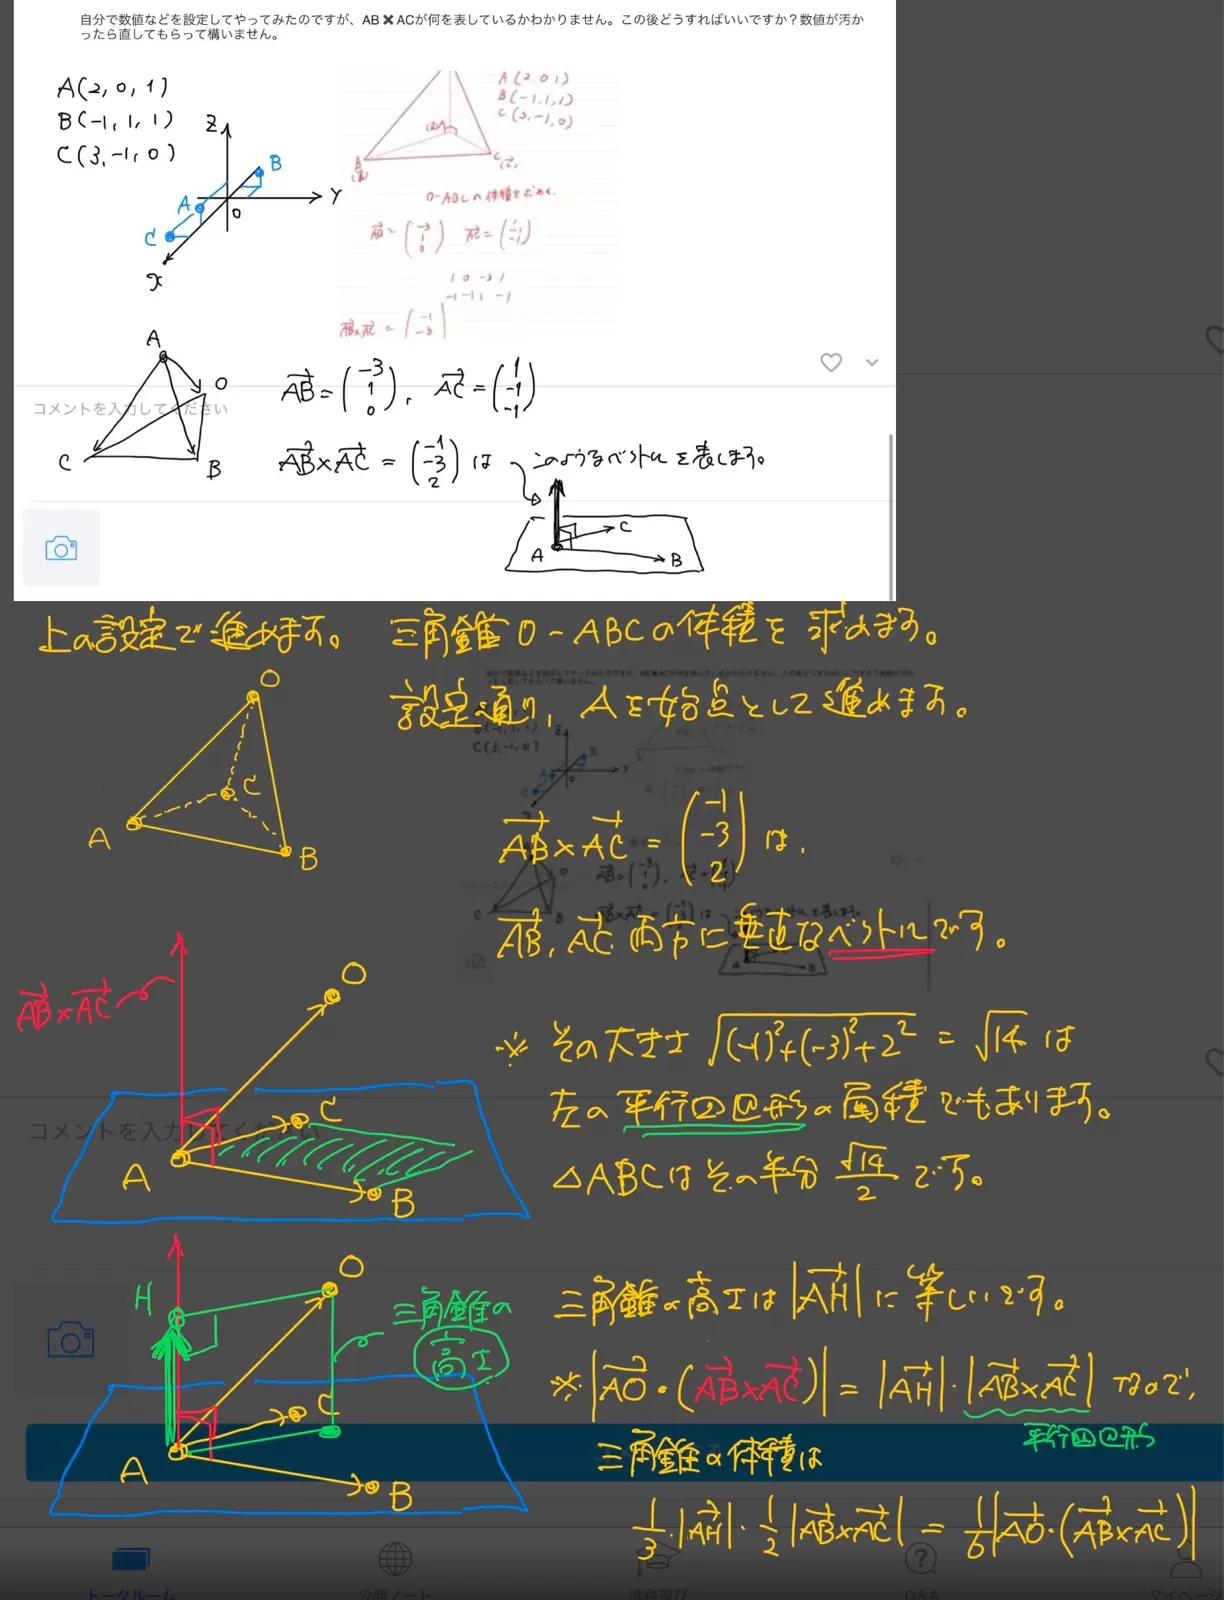 自分で数値などを設定してやってみたのですが、AB✖ACが何を表しているかわかりません。この後どうすればいいですか？数値が汚か
ったら直してもらって構いません。
A(2, 0, 1)
B(-1, 1, 1)
C(3, -1, 0)
Z
B
A
Y
O
C
X
A(2, 0, 1)
B(-1, 1, 1)
C(3, -1, 0)
O-ABCの体積を求める.
AB = (-3 1 0) AC = (1 -1 -1)
1 0 -3 1
-1 -1 1 -1
AB×AC = (-1 -3
A
O
C
B
AB = (-3 1 0), AC = (1 -1 -1)
コメントを入力してください
AB×AC = (-1 -3 2) は このようなベクトルを表します。
C
A
B
上の設定で進めます。 三角錐O-ABCの体積を求めます。
設定通り, Aを始点として進めます。
O
C
A
B
AB×AC = (-1 -3 2) は,
AB, AC 両方に垂直なベクトルです。
AB×AC
O
C
A
B
コメントを入力してください
※ その大きさ √(-1)²+(-3)²+2² = √14 は
左の平行四辺形の面積でもあります。
△ABCはその半分 √14/2 です。
H
O
三角錐の
高さ
C
A
B
三角錐の高さは |AH| に等しいです。
※ |AO・(AB×AC)| = |AH|・|AB×AC| なので,
平行四辺形
三角錐の体積は
1/3・|AH|・1/2|AB×AC| = 1/6|AO・(AB×AC)|
トークルーム
公開ノート
進路選び
Q&A
マイページ